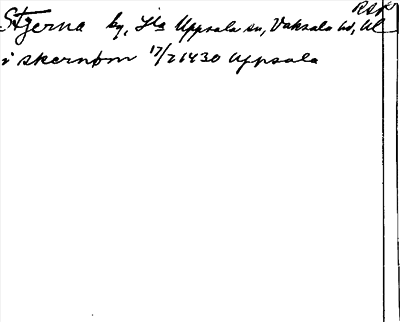 RSK
Stjerna by, Lla Uppsala sn, Vaksala hd, Ul
i skernbm 17/2 1430 Uppsala